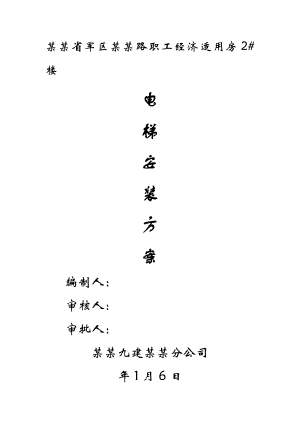 某某省军区某某路职工经济适用房 2#
楼
电
梯
安
装
方
案
编制人：
审核人：
审批人：
某某九建某某分公司
年 1 月 6 日